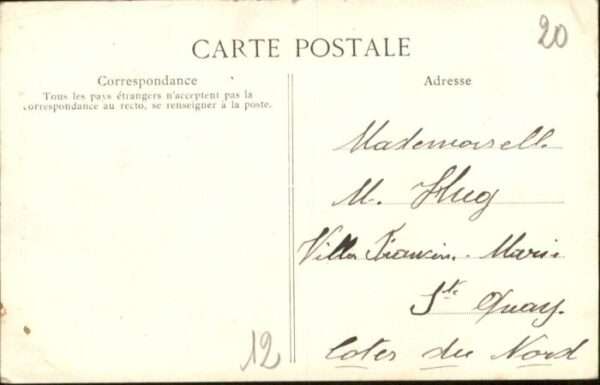 20
CARTE POSTALE
Correspondance
Tous les pays étrangers n'acceptent pas la
correspondance au recto, se renseigner à la poste.
Adresse
Mademoiselle
M. Hug
Villa Marie
St Quay
Cotes du Nord
12